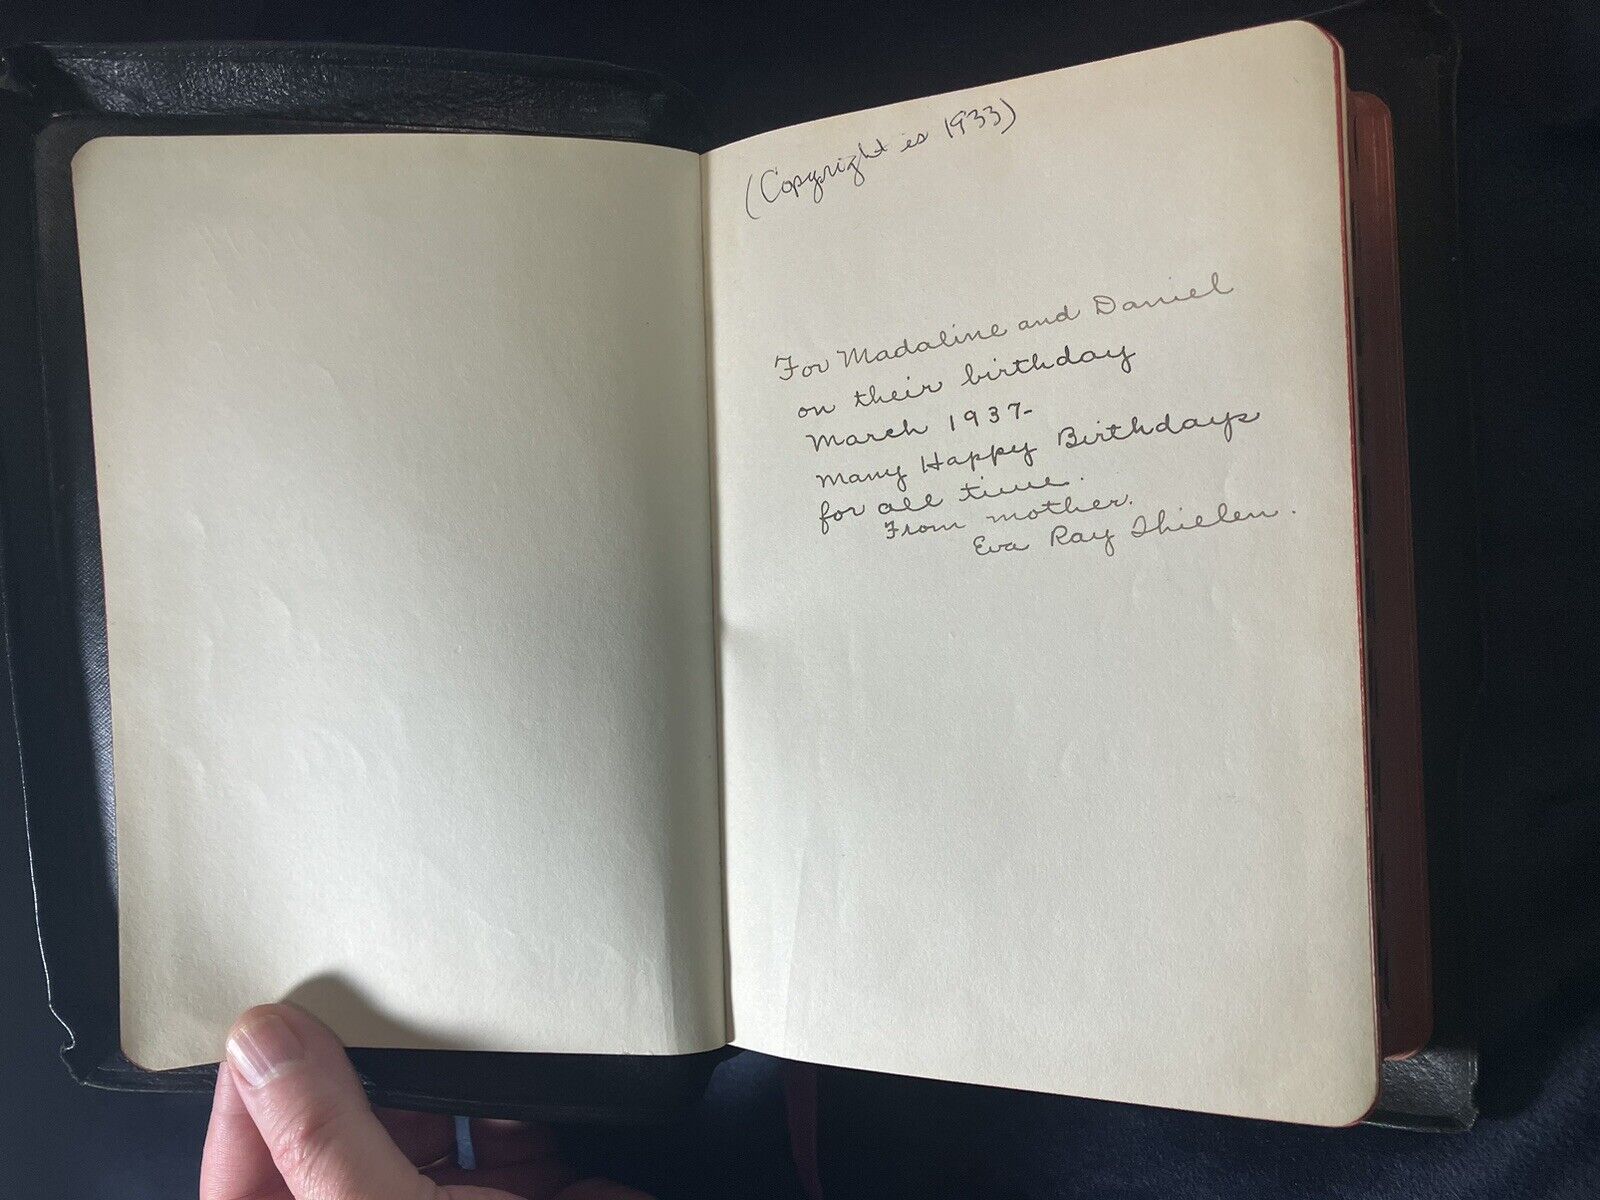 (Copyright is 1933)
For Madaline and Daniel
on their birthday
March 1937-
Many Happy Birthdays
for all time.
From mother.
Eva Ray Thielen.